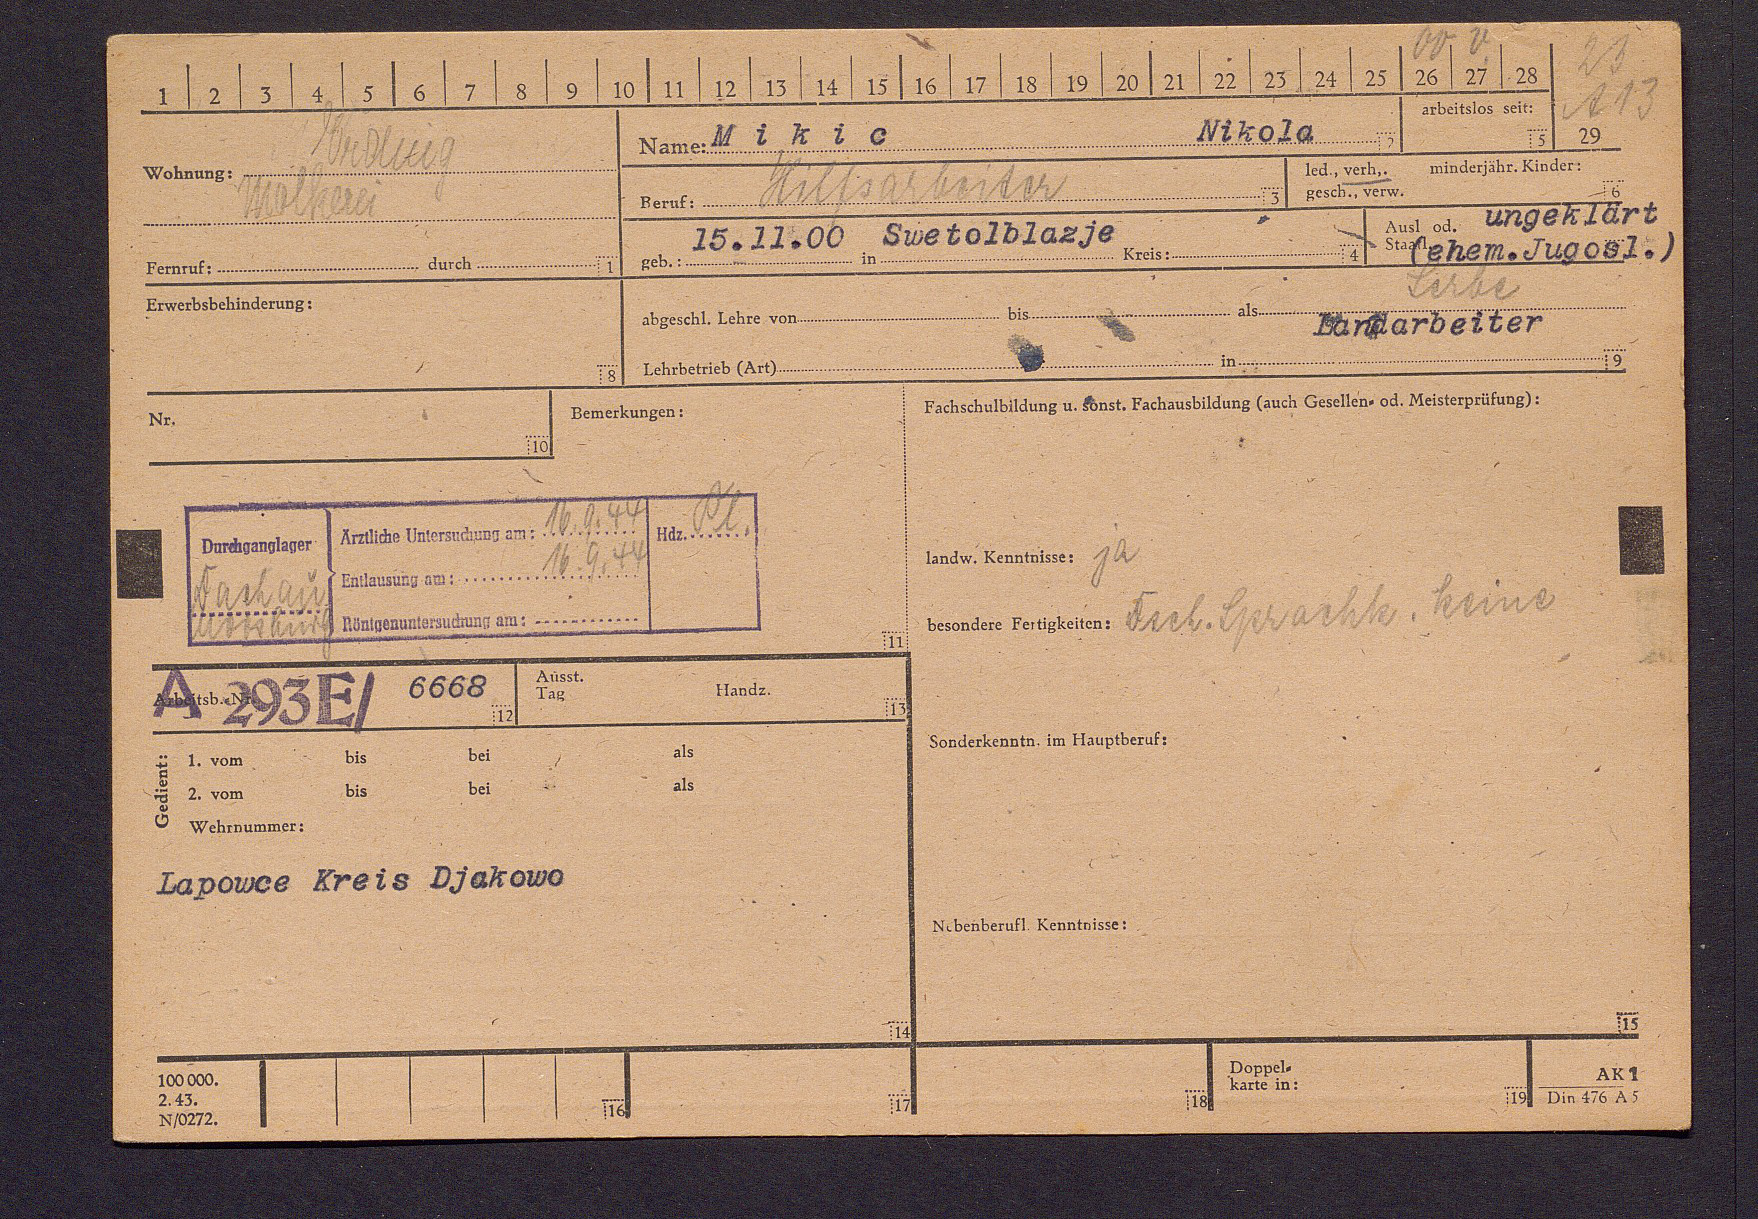 00 v 23
1 2 3 4 5 6 7 8 9 10 11 12 13 14 15 16 17 18 19 20 21 22 23 24 25 26 27 28
A 13
29
arbeitslos seit: 5
Wohnung: Erding
Molkerei
Fernruf: durch 1
Name: Mikic Nikola 2
Beruf: Hilfsarbeiter 3
led., verh., minderjähr. Kinder:
gesch., verw. 6
15.11.00 Swetolblazje
geb.: in Kreis: 4
Ausl od. ungeklärt
Staatl. (ehem. Jugosl.)
Serbe
Erwerbsbehinderung: 8
abgeschl. Lehre von bis als
Landarbeiter
Lehrbetrieb (Art) in 9
Nr. 10
Bemerkungen:
Durchganglager
Dachau
Moosburg
Ärztliche Untersuchung am: 16.9.44 Hdz.
Entlausung am: 16.9.44
Röntgenuntersuchung am:
11
Fachschulbildung u. sonst. Fachausbildung (auch Gesellen- od. Meisterprüfung):
landw. Kenntnisse: ja
besondere Fertigkeiten: Dtsch. Sprachk. keine
Arbeitsb.-Nr. A 293E/ 6668 12
Ausst.
Tag Handz. 13
Gedient:
1. vom bis bei als
2. vom bis bei als
Wehrnummer:
Lapowce Kreis Djakowo
14
Sonderkenntn. im Hauptberuf:
Nebenberufl. Kenntnisse:
15
100 000.
2. 43.
N/0272.
16
17
18
Doppel-
karte in: 19
AK 1
Din 476 A 5